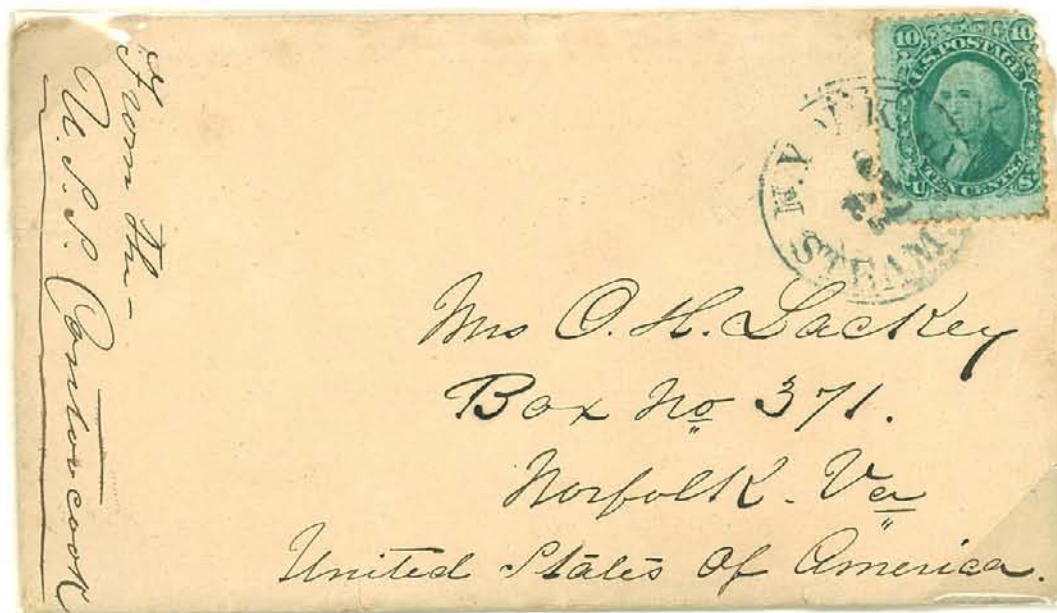 From the -
U.S.S. Contoocook
10 10
U.S. POSTAGE
TEN CENTS
U S
N.Y.
STEAM
Mrs O. H. Lackey
Box No 371.
Norfolk. Va
United States Of America.